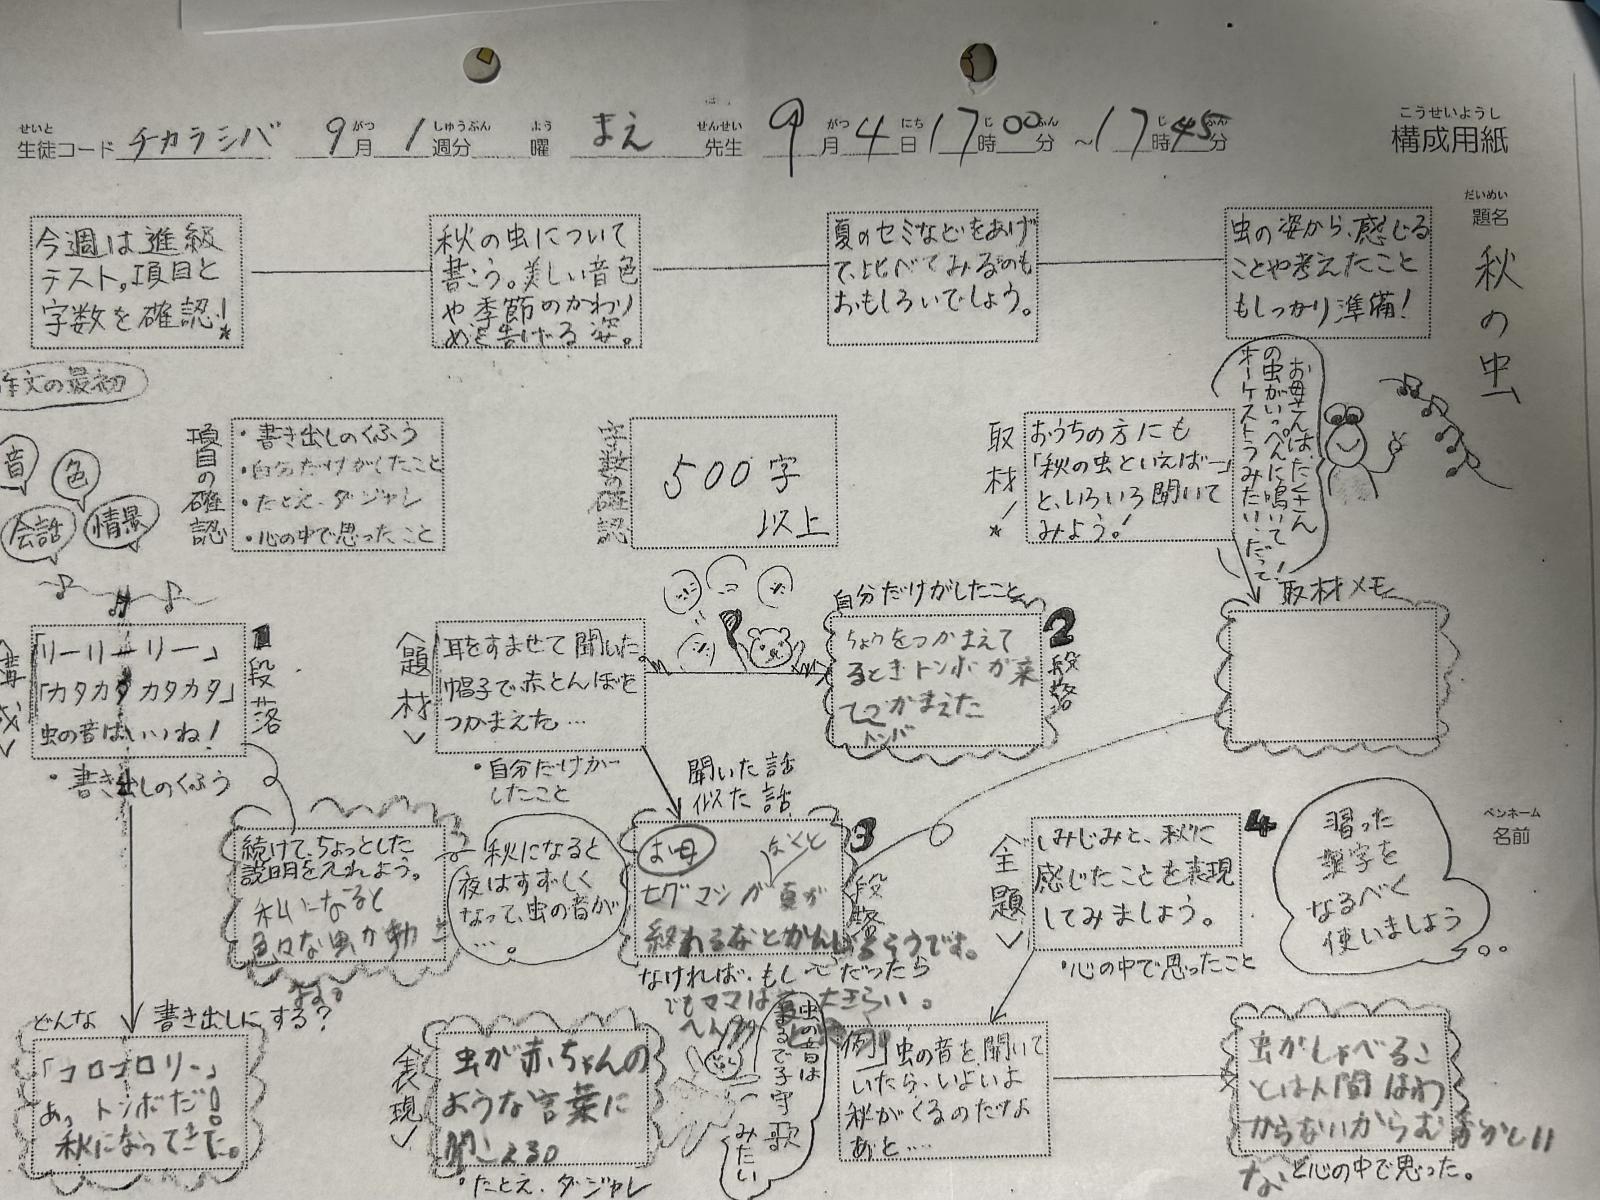 せいと
生徒コード チカラシバ 9月 1週分 曜 まえ 先生 9月4日17時00分～17時45分
がつ しゅうぶん よう せんせい がつ にち じ ふん じ ふん
こうせいようし
構成用紙
だいめい
題名
秋の虫
虫の姿から、感じる
ことや考えたこと
もしっかり準備!
夏のセミなどをあげ
て、比べてみるのも
おもしろいでしょう。
秋の虫について
書こう。美しい音色
や季節のかわり
めを告げる姿。
今週は進級
テスト。項目と
字数を確認!
作文の最初
音
色
会話
情景
項目の確認
・書き出しのくふう
・自分だけがしたこと
・たとえ、ダジャレ
・心の中で思ったこと
字数の確認
500字
以上
取材!
おうちの方にも
「秋の虫といえば…」
と、いろいろ聞いて
みよう!
お母さんは、たくさん
の虫がいっぺんに鳴いて!
オーケストラみたい、だって!
取材メモ
1段落
「リーリーリー」
「カタカタカタカタ」
虫の音はいいね!
・書き出しのくふう
題材
耳をすませて聞いた。
帽子で赤とんぼを
つかまえた…
・自分だけが
したこと
自分だけがしたこと
2段落
ちょうをつかまえて
るときトンボが来
てつかまえた
聞いた話
似た話
続けて、ちょっとした
説明を入れよう。
秋になると
色々な虫が動
秋になると
夜はすずしく
なって、虫の音が
…。
3段落
お母
セグマシが夏が
終わるなとかんじるそうです。
なければ、もし〜だったら
全題
4
しみじみと、秋に
感じたことを表現
してみましょう。
・心の中で思ったこと
習った
漢字を
なるべく
使いましょう
ペンネーム
名前
どんな 書き出しにする?
「コロコロリー」
あっ トンボだ!
秋になってきた。
表現
虫が赤ちゃんの
ような言葉に
聞こえる。
・たとえ、ダジャレ
虫の音は
まるで子守歌
みたい
例 虫の音を聞いて
いたら、いよいよ
秋がくるのだな
あと…
虫がしゃべるこ
とは人間はわ
からないからむずかしい
な と心の中で思った。